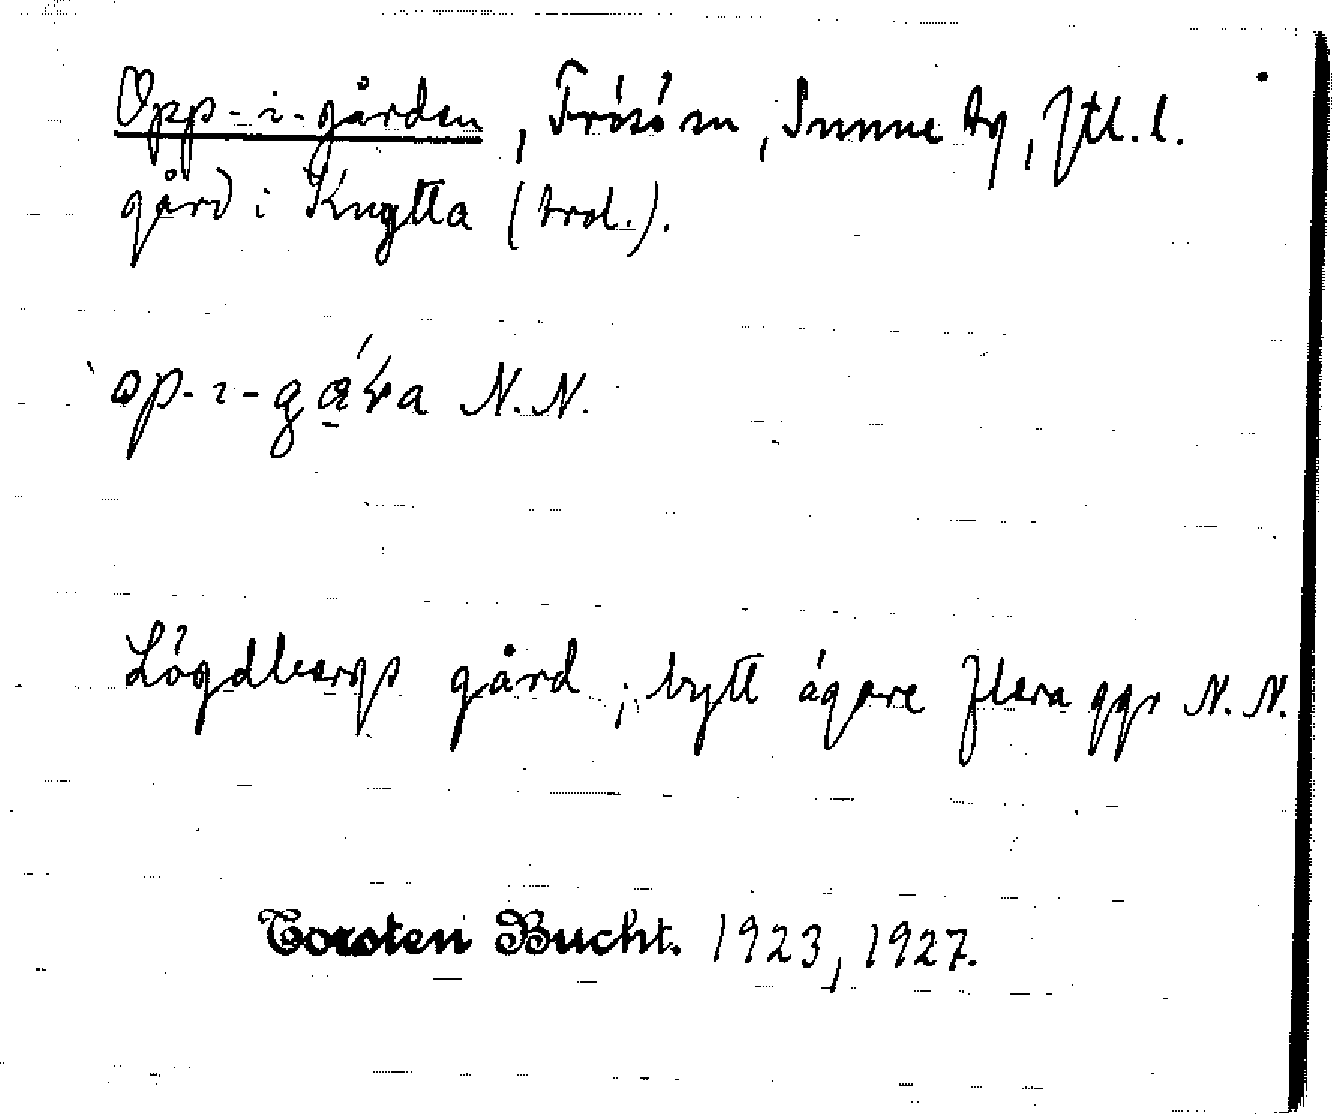 Opp-i-gården, Frösö sn, Sunne tg, Jtl. l.
gård i Knytta (trol.).
op-ɩ-ga̱ ́ra N.N.
Lögdbergs gård; bytt ägare flera ggr N.N.
Torsten Bucht. 1923, 1927.